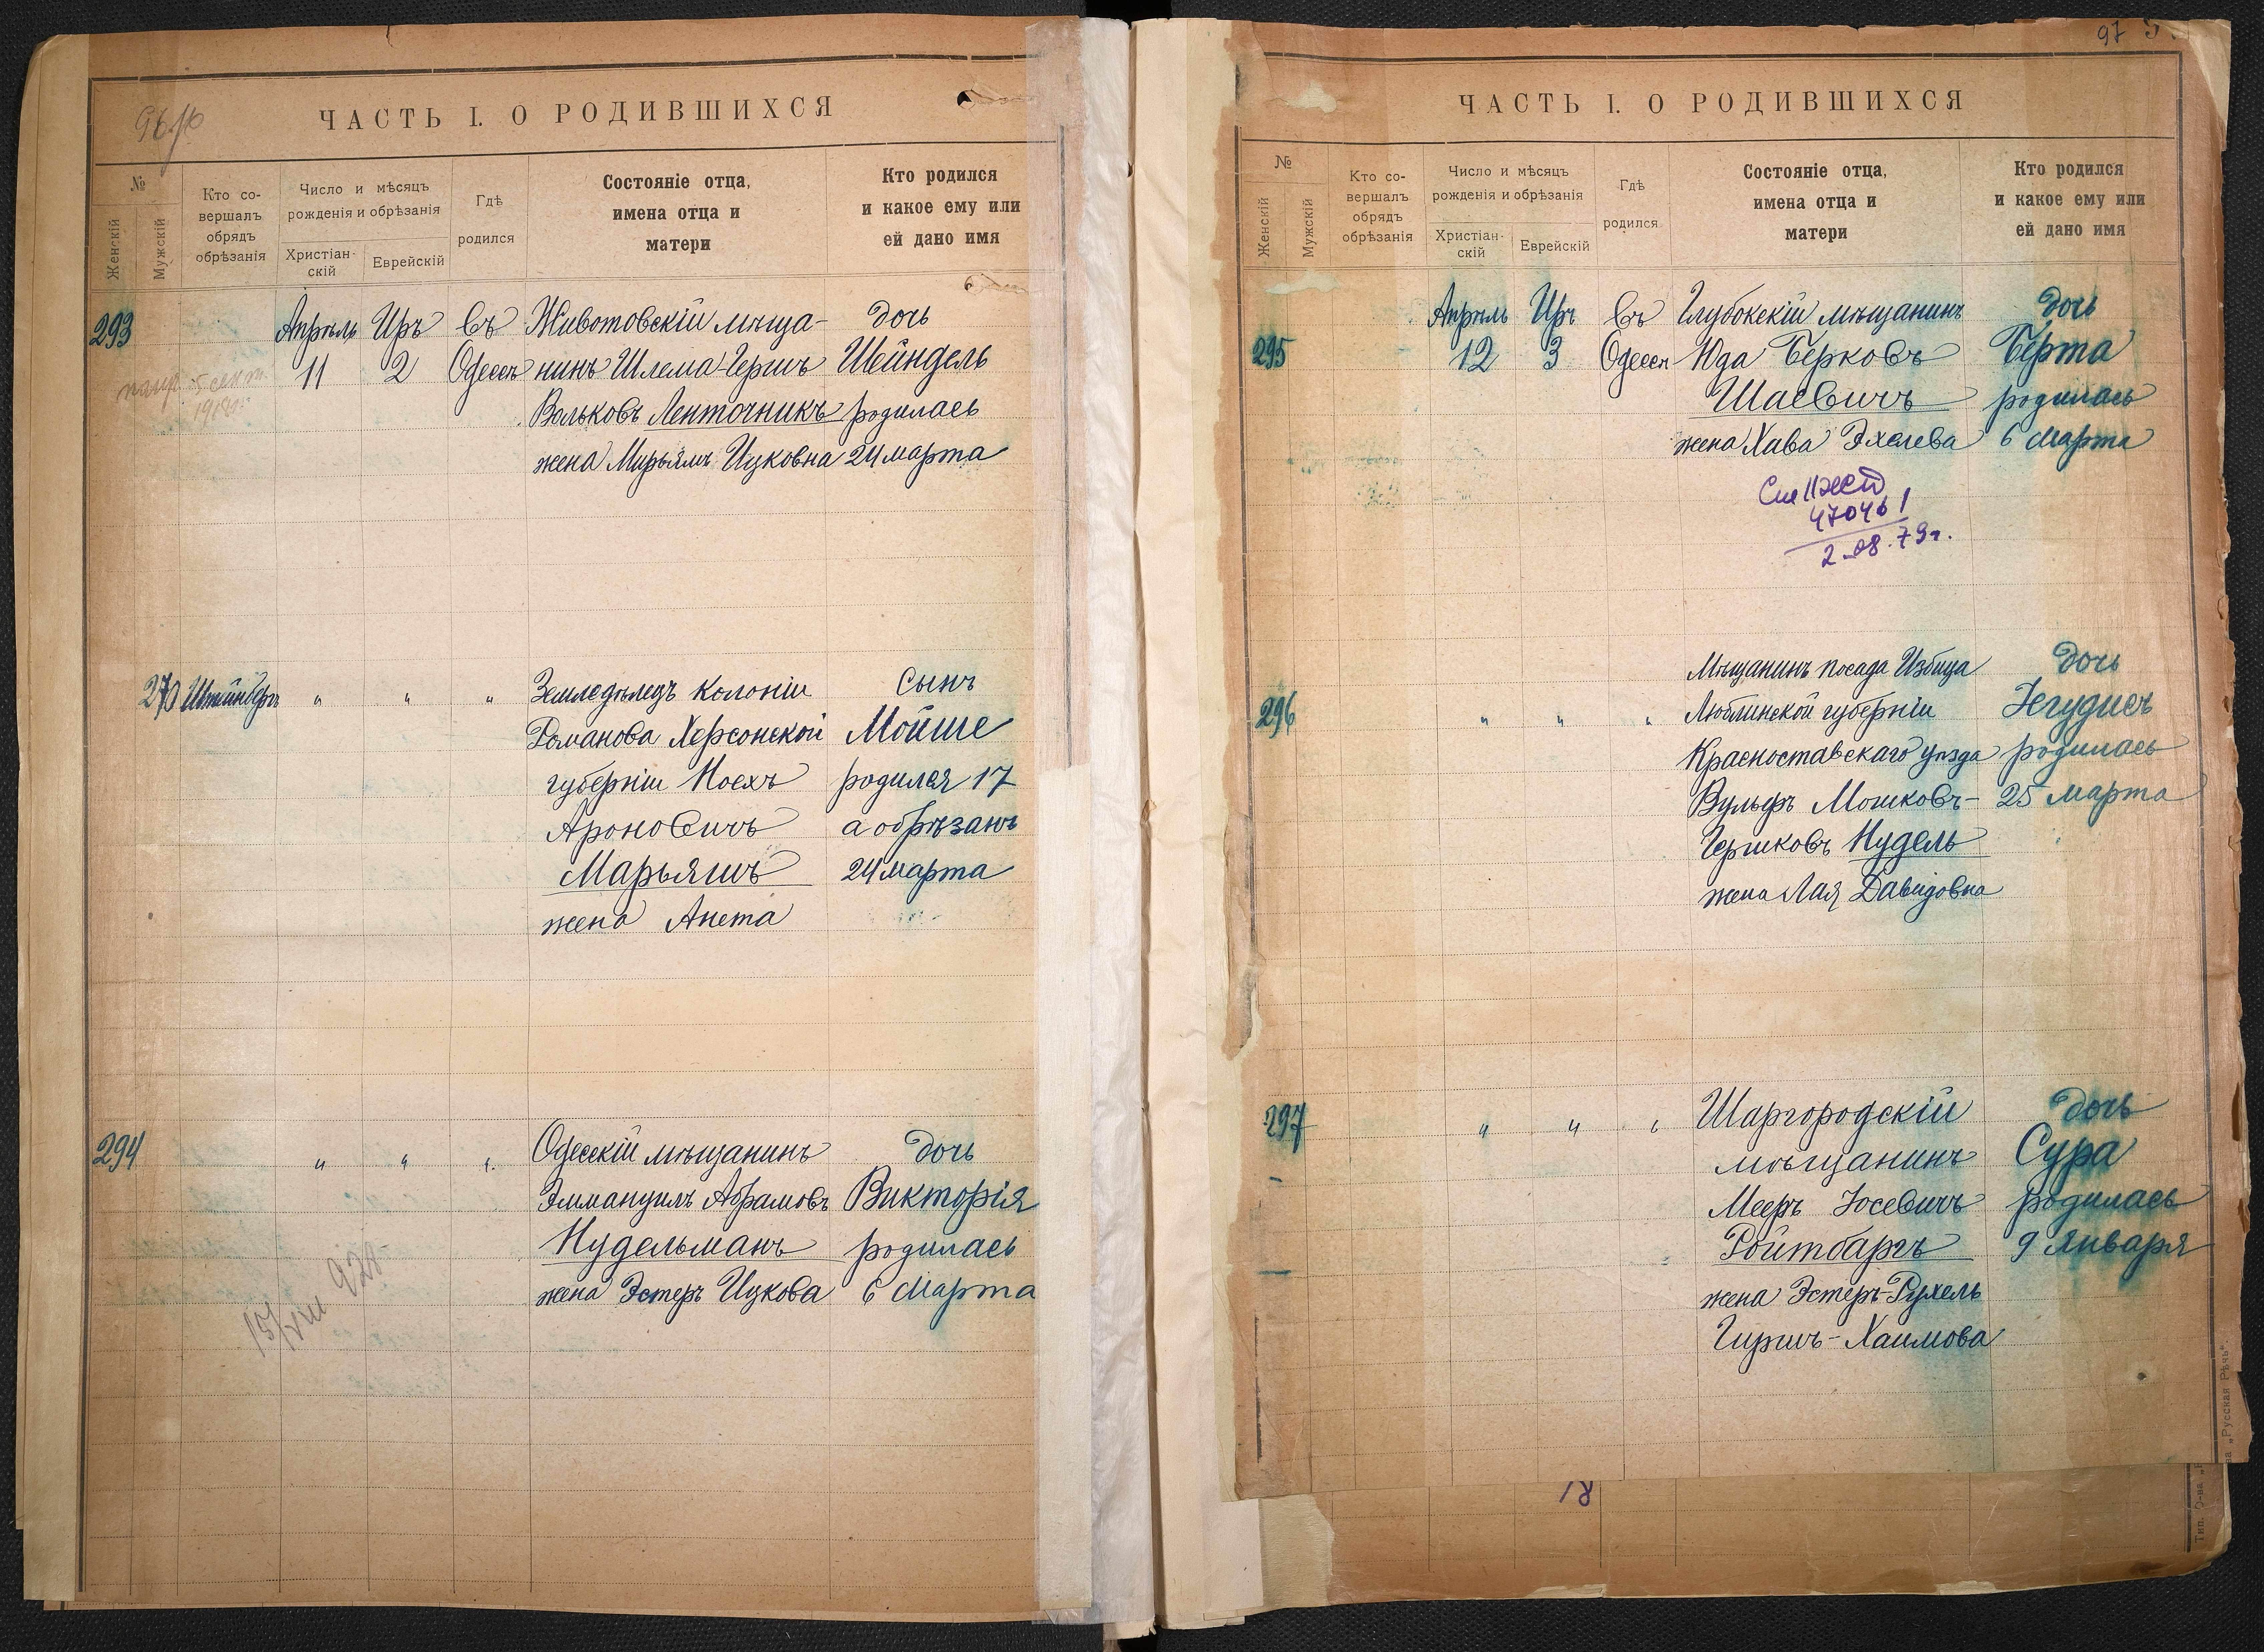 ЧАСТЬ I. О РОДИВШИХСЯ
№
Женскій
Мужскій
Кто со-
вершалъ
обрядъ
обрѣзанія
Число и мѣсяцъ
рожденія и обрѣзанія
Христіан-
скій
Еврейскій
Гдѣ
родился
Состояніе отца,
имена отца и
матери
Кто родился
и какое ему или
ей дано имя
293
Апрѣль Иръ въ Животовскій мѣща- дочь
11 2 Одессѣ нинъ Шлема-Гершъ Шейндель
Вольковъ Ленточникъ родилась
жена Мирьямъ Ицковна 24 марта
270 Штейнбергъ " " " Земледѣлецъ колоніи сынъ
Романова Херсонской Мойше
губерніи Ноехъ родился 17
Ароновичъ а обрѣзанъ
Марьяшъ 24 марта
жена Анета
294 " " " Одесскій мѣщанинъ дочь
Эммануилъ Абрамовъ Викторія
Нудельманъ родилась
жена Эстеръ Ицкова 6 Марта
15/VIII 928
97
ЧАСТЬ I. О РОДИВШИХСЯ
№
Женскій
Мужскій
Кто со-
вершалъ
обрядъ
обрѣзанія
Число и мѣсяцъ
рожденія и обрѣзанія
Христіан-
скій
Еврейскій
Гдѣ
родился
Состояніе отца,
имена отца и
матери
Кто родился
и какое ему или
ей дано имя
Апрѣль Иръ въ Глубокскій мѣщанинъ дочь
295 12 3 Одессѣ Юда Берковъ Берта
Шаевичъ родилась
жена Хава Эхелева 6 Марта
470461
2.08.79г.
Мѣщанинъ посада Избица дочь
296 " " " Люблинской губерніи Іегудисъ
Красноставскаго уѣзда родилась
Вульфъ Мошковъ- 25 марта
Гершковъ Нудель
жена Лая Давидовна
297 " " " Шаргородскій дочь
мѣщанинъ Сура
Мееръ Іосевичъ родилась
Ройтбаргъ 9 Января
жена Эстеръ-Рухель
Гиршъ-Хаимова
"Русская Рѣчь"